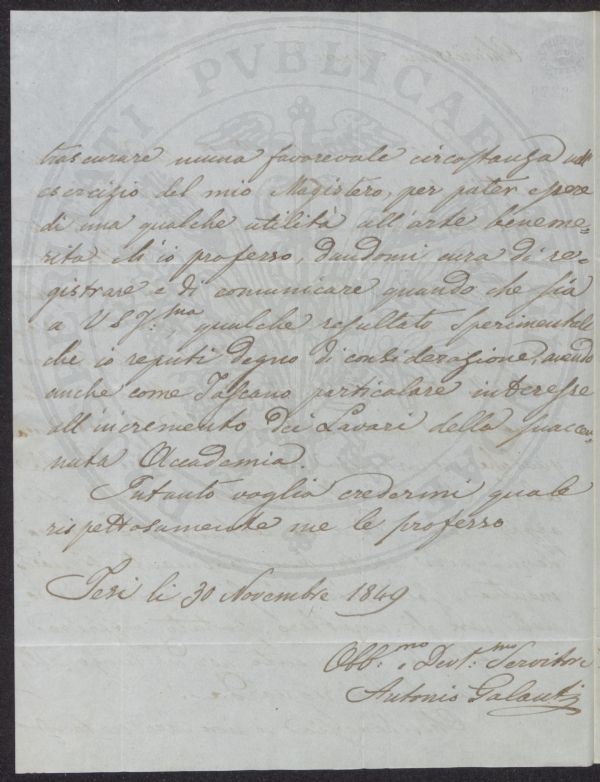 trascurare niuna favorevole circostanza nell'
esercizio del mio Magistero, per poter essere
di una qualche utilità all'arte beneme-
rita ch'io professo, dandomi cura di re-
gistrare e di comunicare quando che sia
a V. S. Ill:ma qualche resultato sperimentale
che io reputi degno di considerazione, avendo
anche come Toscano particolare interesse
all'incremento dei Lavori della suaccen-
nata Accademia.
Intanto voglia credermi quale
rispettosamente me le professo
Jesi li 30 Novembre 1849
Obb:mo e Devt:mo Servitore
Antonio Galanti